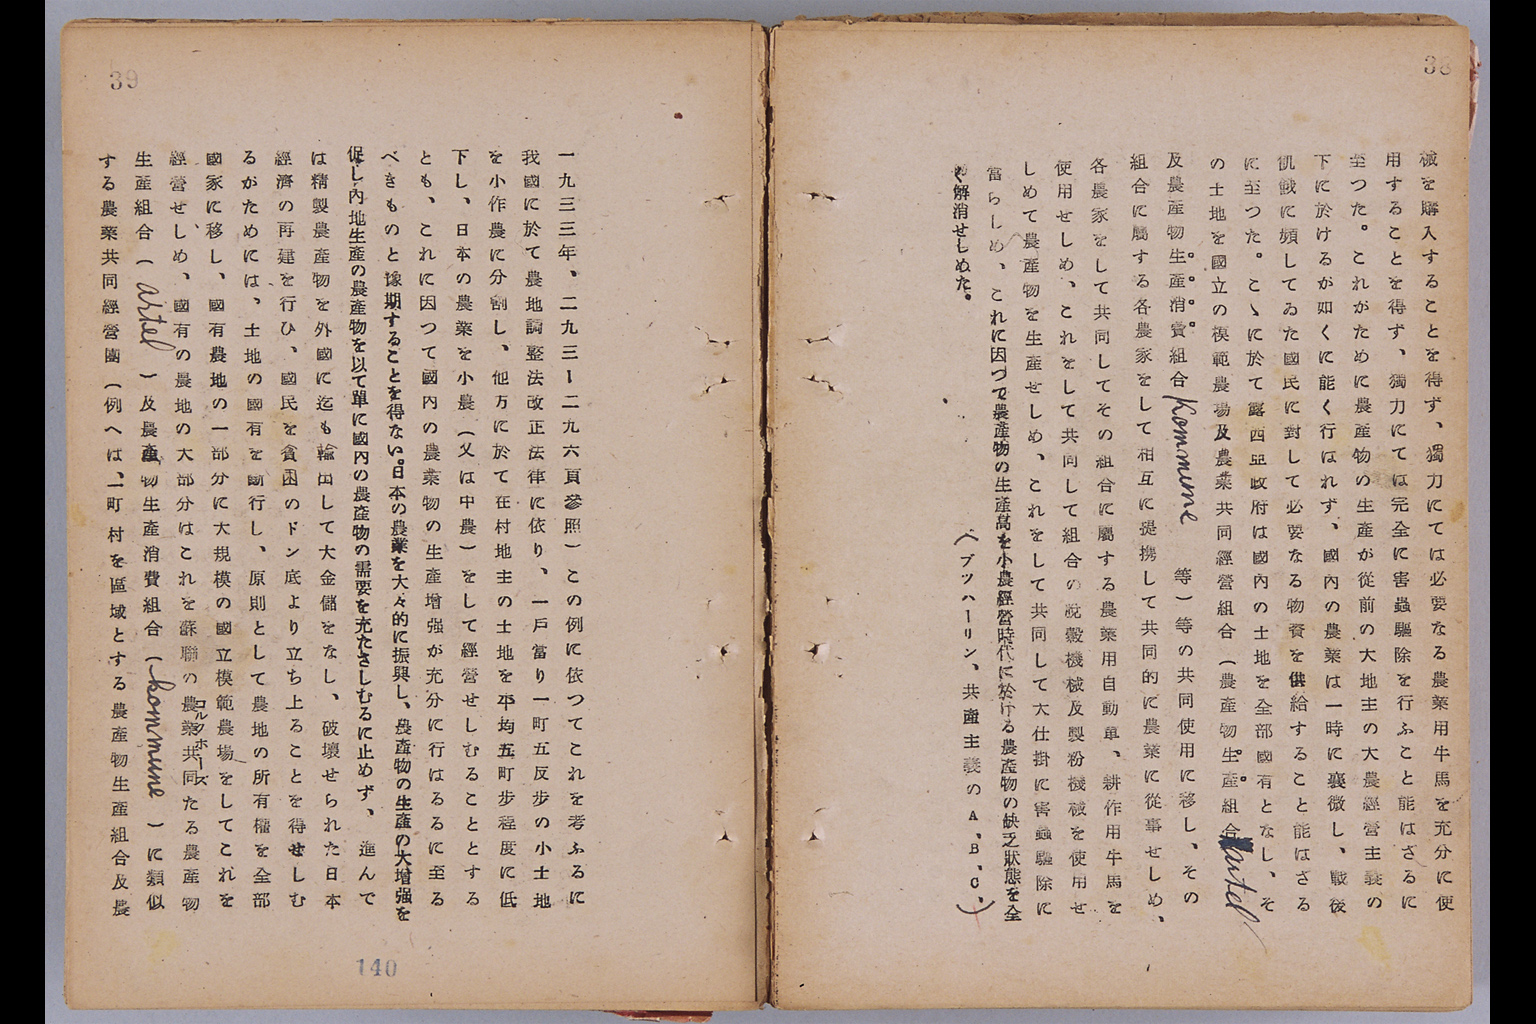 38
械を購入することを得ず、獨力にては必要なる農業用牛馬を充分に使
用することを得ず、獨力にては完全に害蟲驅除を行ふこと能はざるに
至つた。これがために農產物の生產が從前の大地主の大農經營主義の
下に於けるが如くに能く行はれず、國內の農業は一時に衰微し、戰後
飢餓に瀕してゐた國民に對して必要なる物資を供給すること能はざる
に至つた。こゝに於て露西亞政府は國內の土地を全部國有となし、そ
の土地を國立の模範農場及農業共同經營組合(農產物生產組合artel
及農產物生產消費組合kommune等)等の共同使用に移し、その
組合に屬する各農家をして相互に提携して共同的に農業に從事せしめ、
各農家をして共同してその組合に屬する農業用自動車、耕作用牛馬を
使用せしめ、これをして共同して組合の脫穀機械及製粉機械を使用せ
しめて農產物を生產せしめ、これをして共同して大仕掛に害蟲驅除に
當らしめ、これに因つて農產物の生產高を小農經營時代に於ける農產物の缺乏狀態を全
く解消せしめた。
(ブツハーリン、共產主義のA、B、C、)
39
一九三三年、二九三ー二九六頁參照)この例に依つてこれを考ふるに
我國に於て農地調整法改正法律に依り、一戶當り一町五反步の小土地
を小作農に分割し、他方に於て在村地主の土地を平均五町步程度に低
下し、日本の農業を小農(又は中農)をして經營せしむることとする
とも、これに因つて國內の農業物の生產增强が充分に行はるるに至る
べきものと豫期することを得ない。日本の農業を大々的に振興し、農產物の生產の大增强を
促し內地生產の農產物を以て單に國內の農產物の需要を充たさしむるに止めず、進んで
は精製農產物を外國に迄も輸出して大金儲をなし、破壞せられた日本
經濟の再建を行ひ、國民を貧困のドン底より立ち上ることを得せしむ
るがためには、土地の國有を斷行し、原則として農地の所有權を全部
國家に移し、國有農地の一部分に大規模の國立模範農場をしてこれを
經營せしめ、國有の農地の大部分はこれを蘇聯の農業共同たる農產物
コルクホーズ
生產組合(artel)及農產物生產消費組合(kommune)に類似
する農業共同經營團(例へは、一町村を區域とする農產物生產組合及農
140